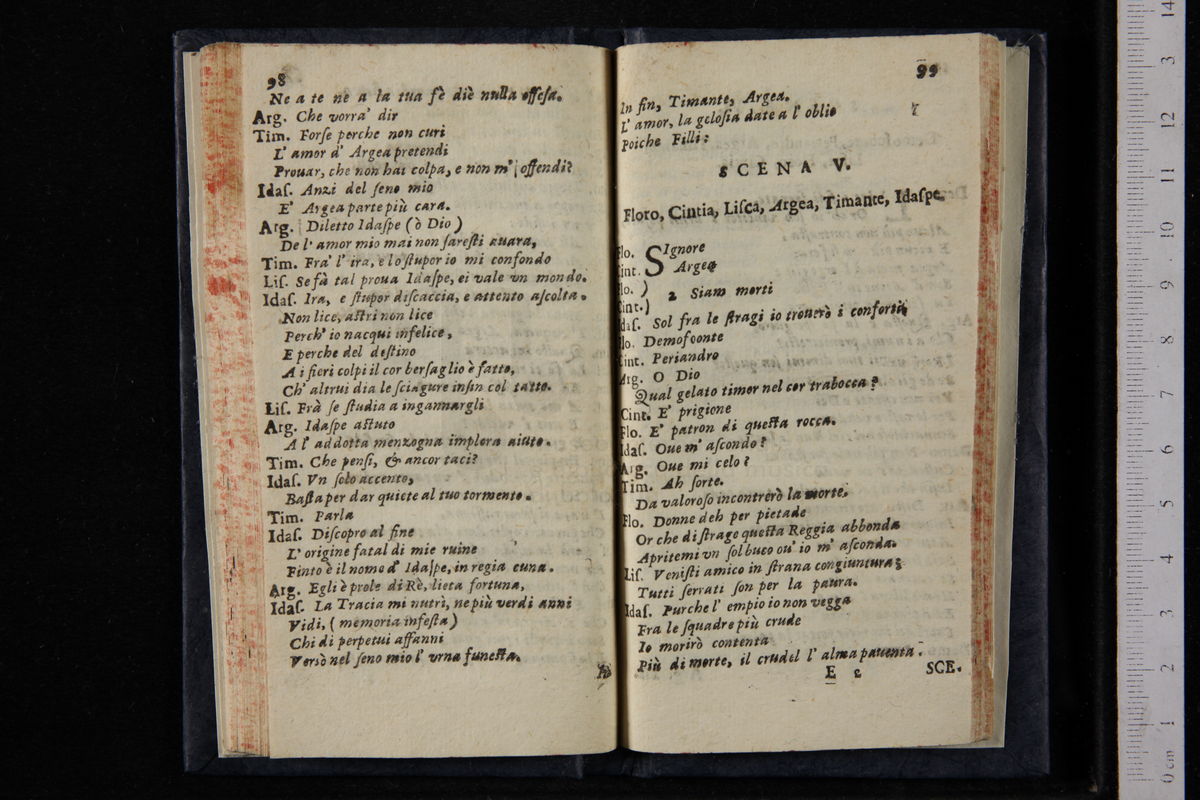 98
Ne a te ne a la tua fè diè nulla offeſa.
Arg. Che vorra' dir
Tim. Forſe perche non curi
L' amor d' Argea pretendi
Prouar, che non hai colpa, e non m' offendi?
Idaſ. Anzi del ſeno mio
E' Argea parte più cara.
Arg. Diletto Idaſpe (ò Dio)
De l' amor mio mai non ſareſti auara,
Tim. Fra' l' ira, e lo ſtupor io mi confondo
Liſ. Se fà tal proua Idaſpe, ei vale vn mondo.
Idaſ. Ira, e ſtupor diſcaccia, e attento aſcolta.
Non lice, aſtri non lice
Perch' io nacqui infelice,
E perche del deſtino
A i fieri colpi il cor berſaglio è fatto,
Ch' altrui dia le ſciagure inſin col tatto.
Liſ. Frà ſe ſtudia a ingannargli
Arg. Idaſpe aſtuto
A l' addotta menzogna implora aiuto.
Tim. Che penſi, & ancor taci?
Idaſ. Vn ſolo accento,
Baſta per dar quiete al tuo tormento.
Tim. Parla
Idaſ. Diſcopro al fine
L' origine fatal di mie ruine
Finto è il nome d' Idaſpe, in regia cuna.
Arg. Egli è prole di Rè, lieta fortuna,
Idaſ. La Tracia mi nutrì, ne più verdi anni
Vidi, (memoria infeſta)
Chi di perpetui affanni
Versò nel ſeno mio l' vrna funeſta.
99
In fin, Timante, Argea.
L' amor, la geloſia date a l' oblio
Poiche Filli:
SCENA V.
Floro, Cintia, Liſca, Argea, Timante, Idaſpe.
Flo. SIgnore
Cint. Argea
Flo. )
2 Siam morti
Cint.)
Idaſ. Sol fra le ſtragi io trouerò i conforti
Flo. Demofoonte
Cint. Periandro
Arg. O Dio
Qual gelato timor nel cor trabocca?
Cint. E' prigione
Flo. E' patron di queſta rocca.
Idaſ. Oue m' aſcondo?
Arg. Oue mi celo?
Tim. Ah ſorte.
Da valoroſo incontrerò la morte.
Flo. Donne deh per pietade
Or che di ſtrage queſta Reggia abbonda
Apritemi vn ſol buco ou' io m' aſconda.
Liſ. Veniſti amico in ſtrana congiuntura;
Tutti ſerrati ſon per la paura.
Idaſ. Purche l' empio io non vegga
Fra le ſquadre più crude
Io morirò contenta
Più di morte, il crudel l' alma pauenta.
E 2 SCE.